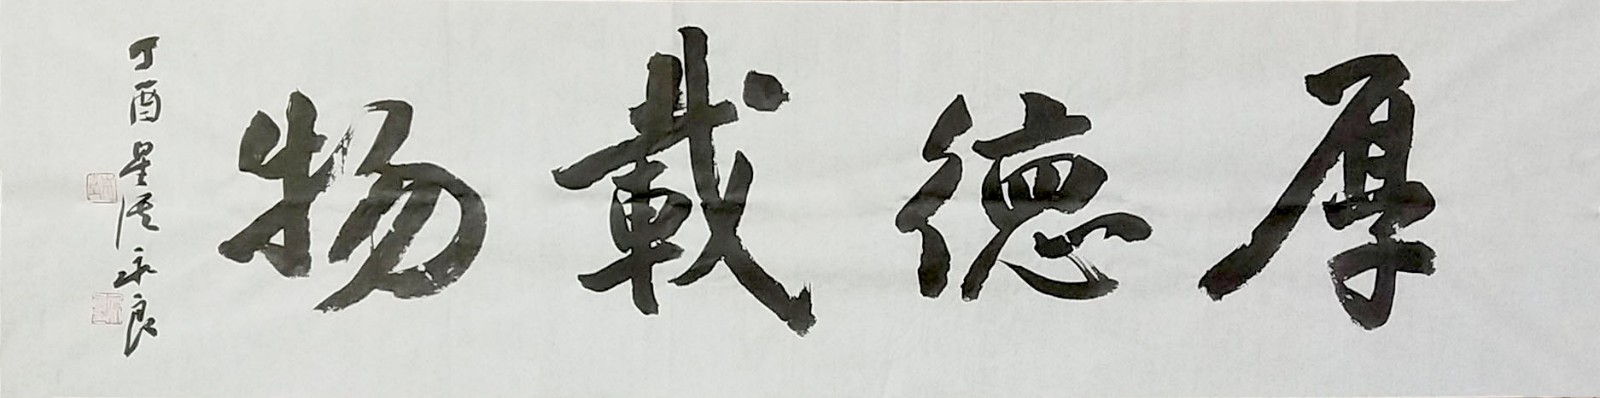 厚德載物
丁酉 星 永良